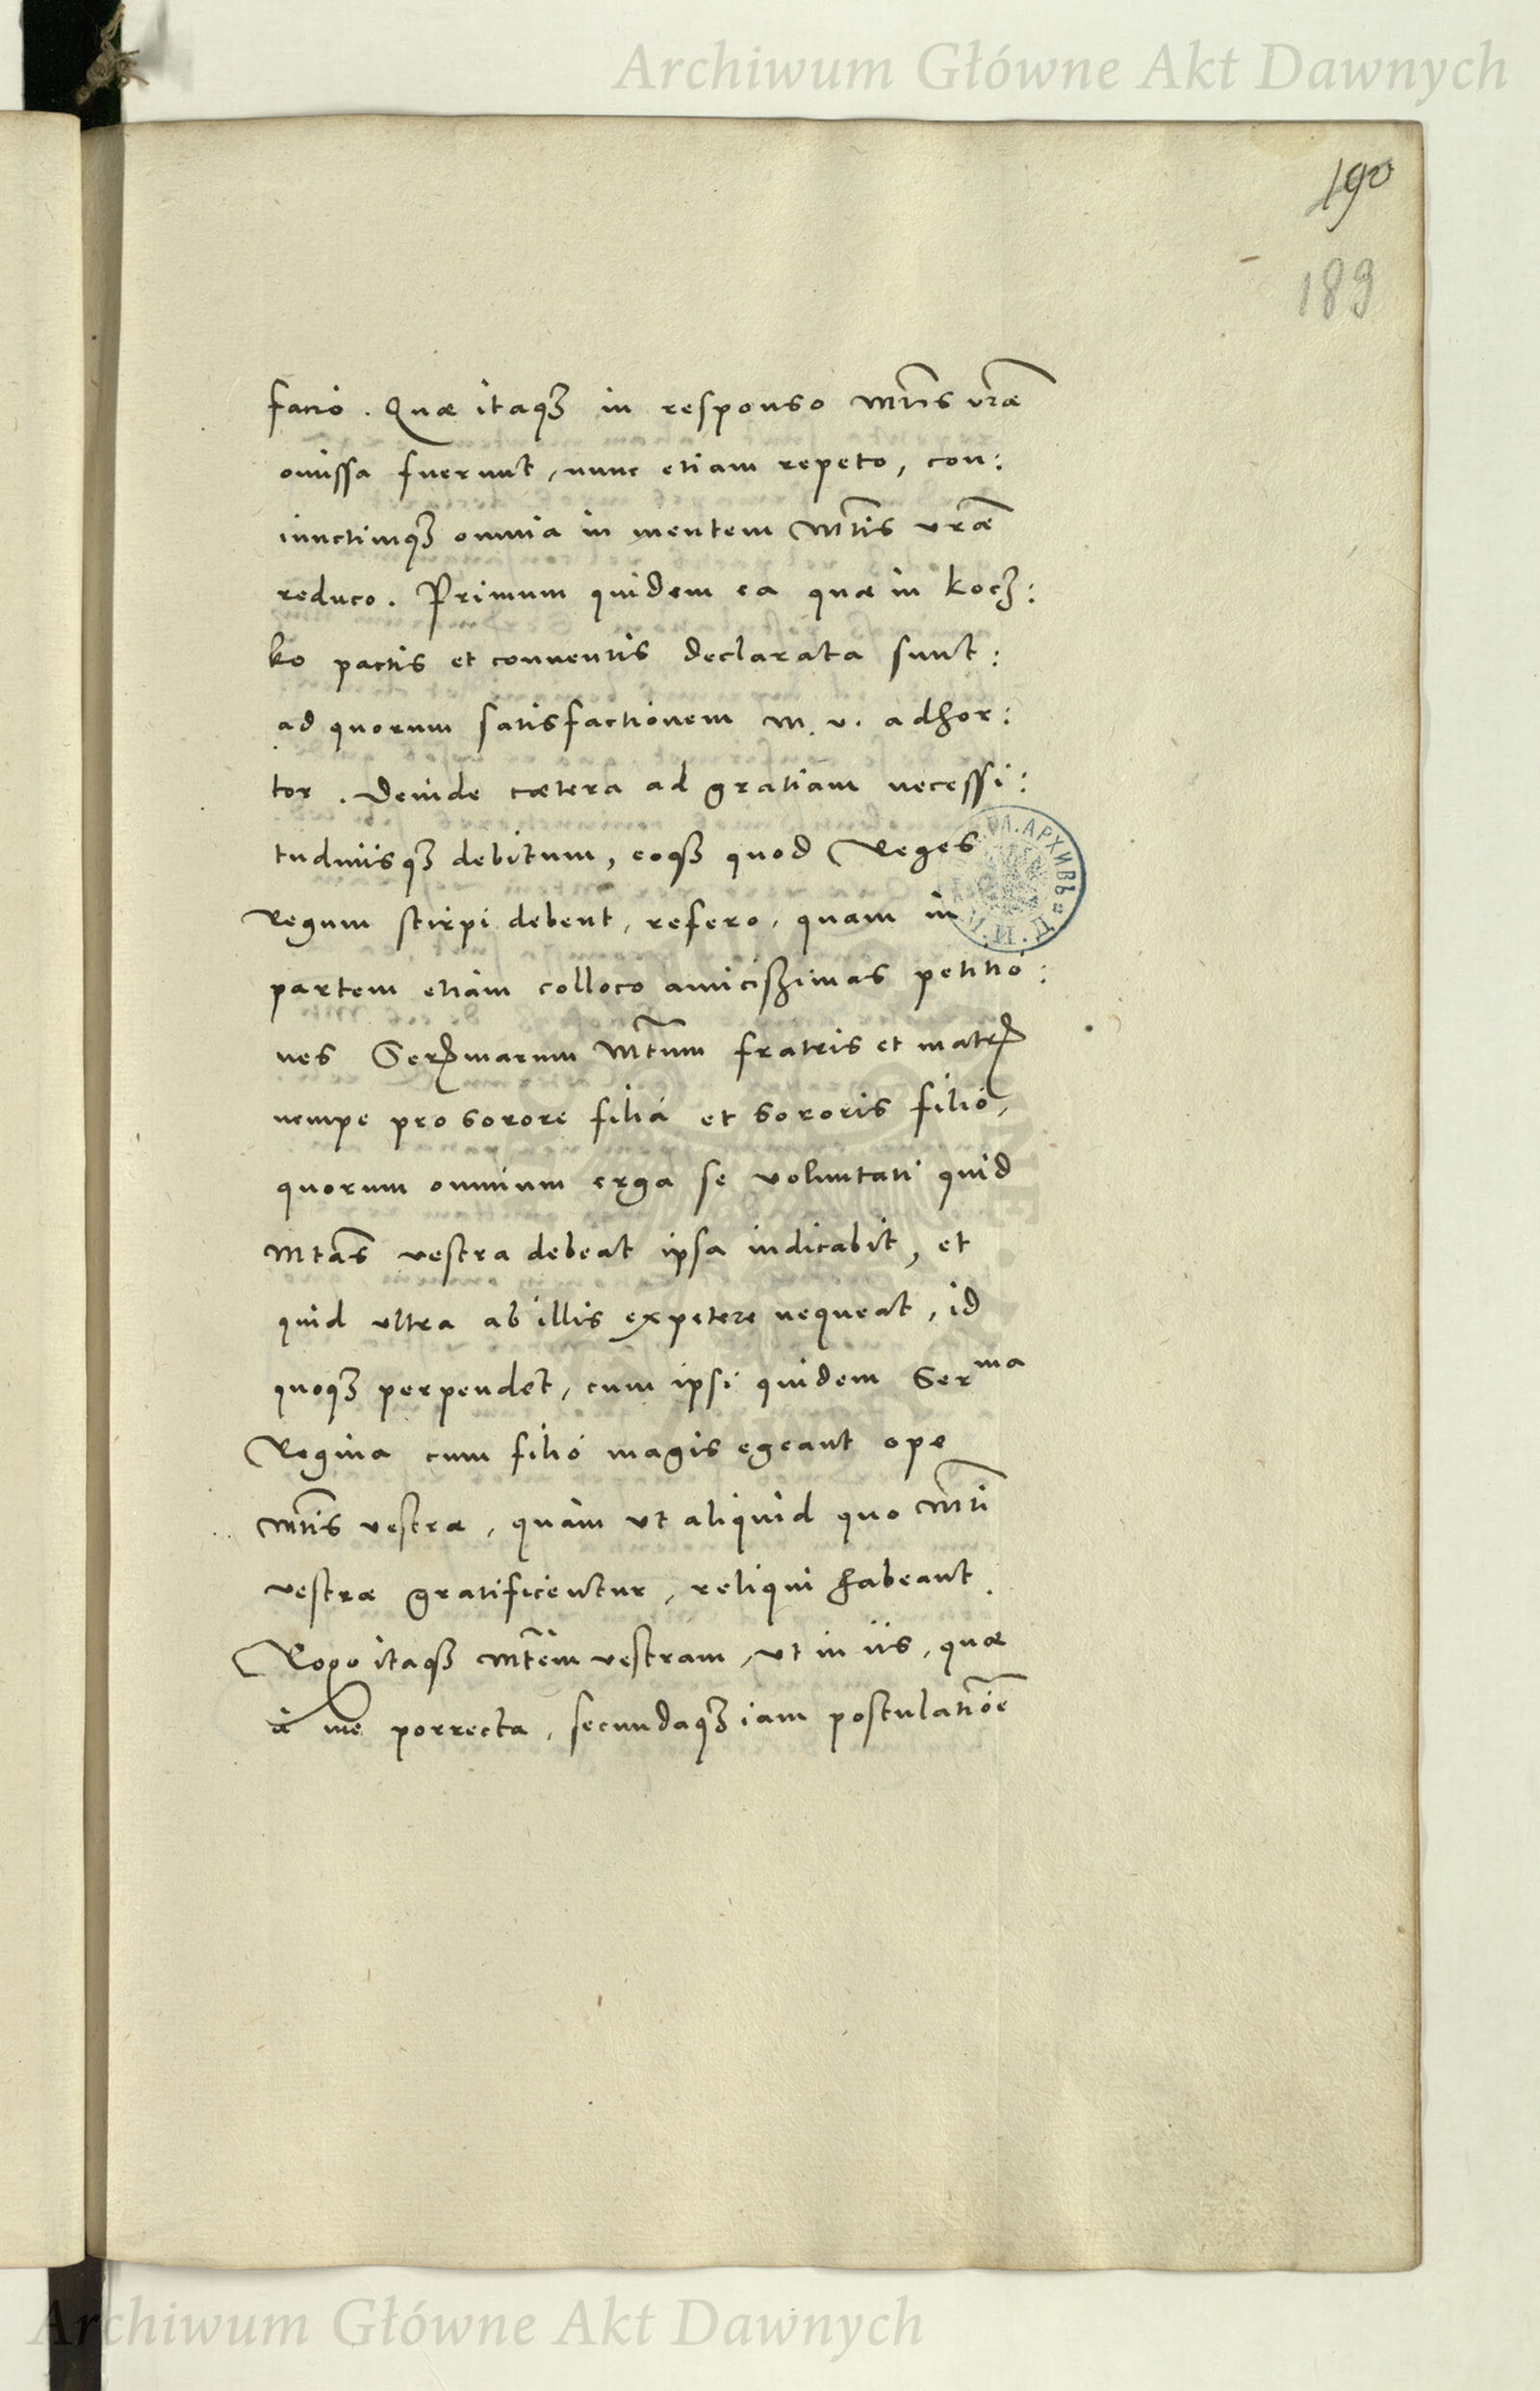 Archiwum Główne Akt Dawnych
190
189
facio. Quæ itaqꝫ in responso Mtis vræ
omissa fuerunt, nunc etiam repeto, con:
iunctimqꝫ omnia in mentem Mtis vræ
reduco. Primum quidem ea quæ in Kocz:
ko pactis et conuentis declarata sunt:
ad quorum satisfactionem M. v. adhor:
tor. Deinde cætera ad gratiam necessi:
tudinisqꝫ debitum, eoqꝫ quod Reges
Regum stirpi debent, refero, quam in
partem etiam colloco amicissimas petitio:
nes Serꝫmarum Mtum fratris et matris
nempe pro sorore filia et sororis filio,
quorum omnium erga se voluntati quid
Mtas vestra debeat ipsa iudicabit, et
quid ultra ab illis expetere nequeat, id
quoqꝫ perpendet, cum ipsi quidem Serma
Regina cum filio magis egeant ope
Mtis vestræ, quam ut aliquid quo Mti
vestræ gratificentur, reliqui habeant.
Rogo itaqꝫ Mtem vestram, ut in iis, quæ
à me porrecta, secundaqꝫ iam postulatiōe
Archiwum Główne Akt Dawnych